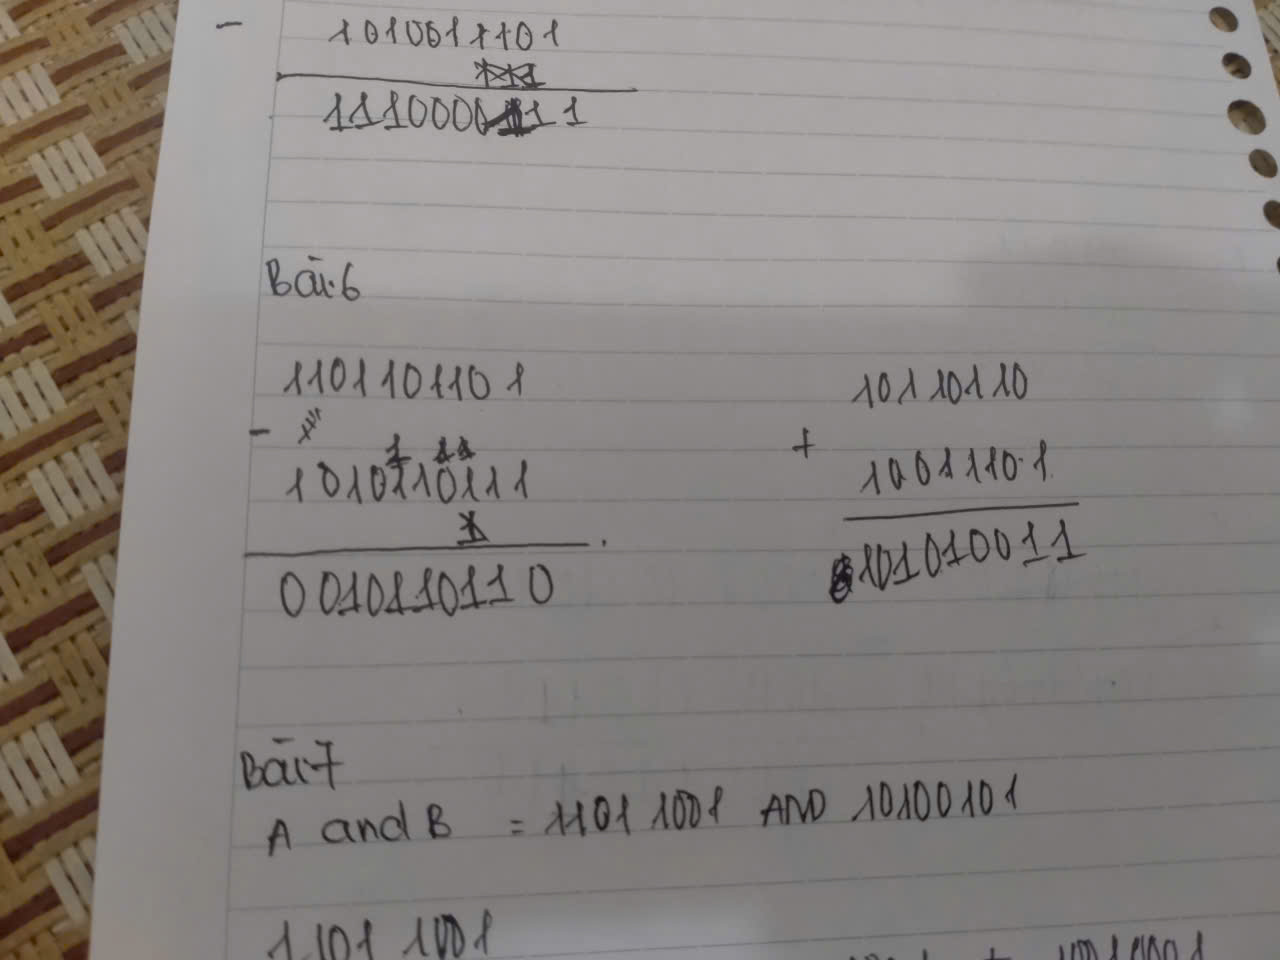 -
1010011101
1110000111
Bài 6
1101101101
-
1 11
1010110111
0010110110
10110110
+
10011101
101010011
Bài 7
A and B = 1101 1001 AND 10100101
1101 1001